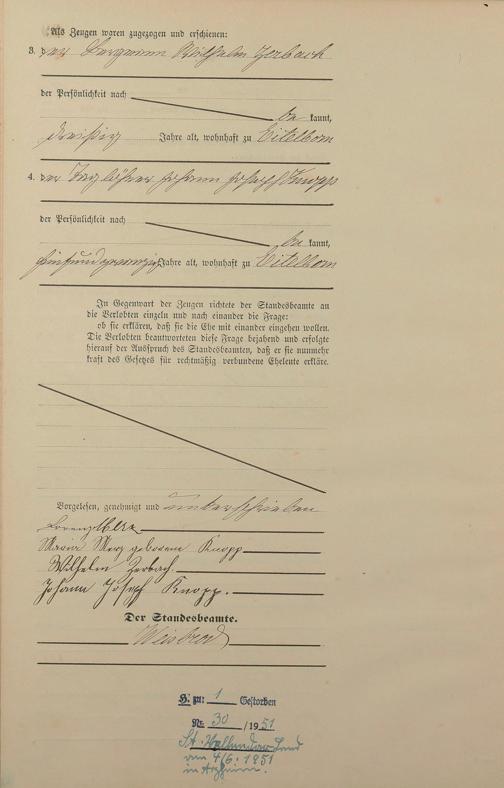 Als Zeugen waren zugezogen und erschienen:
3. der Bergmann Wilhelm Zerbach
der Persönlichkeit nach
be kannt,
dreißig Jahre alt, wohnhaft zu Eitelborn
4. der Taglöhner Johann Joseph Knopp
der Persönlichkeit nach
be kannt,
fünfundzwanzig Jahre alt, wohnhaft zu Eitelborn
In Gegenwart der Zeugen richtete der Standesbeamte an
die Verlobten einzeln und nach einander die Frage:
ob sie erklären, daß sie die Ehe mit einander eingehen wollen.
Die Verlobten beantworteten diese Frage bejahend und erfolgte
hierauf der Ausspruch des Standesbeamten, daß er sie nunmehr
kraft des Gesetzes für rechtmäßig verbundene Eheleute erkläre.
Vorgelesen, genehmigt und unterschrieben
Lorenz Merz
Maria Merz geborene Knopp
Wilhelm Zerbach
Johann Josef Knopp.
Der Standesbeamte.
Weisbrod
H. zu: 1 Gestorben
Nr. 30 / 1951
St. Vallendar Land
am 4/6. 1951
in Arzheim.